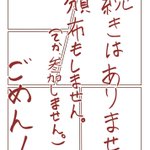 続きはありませ
頒布もしません。
(てか、参加しません。)
ごめん!